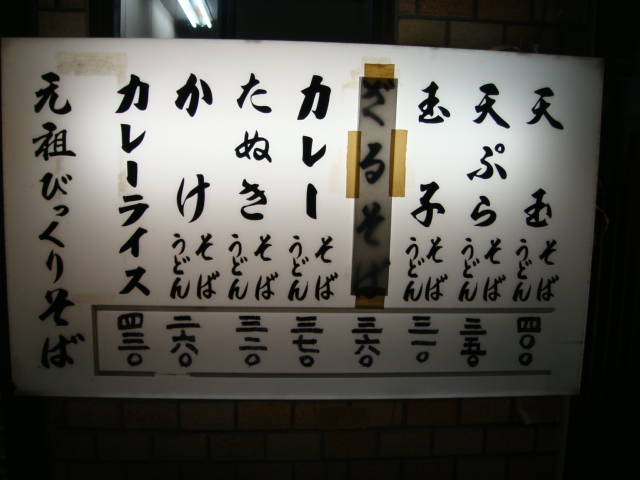 天玉 そば うどん 四〇〇
天ぷら そば うどん 三五〇
玉子 そば うどん 三一〇
ざるそば 三六〇
カレー そば うどん 三七〇
たぬき そば うどん 三二〇
かけ そば うどん 二六〇
カレーライス 四三〇
元祖びっくりそば